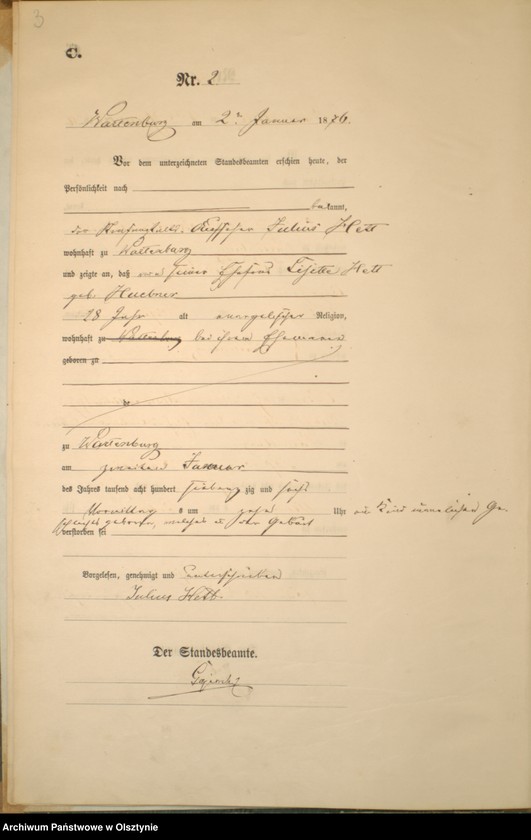 3
C.
Nr. 2
Wartenburg am 2n Januar 1876.
Vor dem unterzeichneten Standesbeamten erschien heute, der
Persönlichkeit nach
bekannt,
der Aufseher Julius Hett
wohnhaft zu Wartenburg
und zeigte an, daß von seiner Ehefrau Lisette Hett
geb. Huebner
28 Jahr alt evangelischer Religion,
wohnhaft zu Wartenburg bei ihrem Ehemanne
geboren zu
de
zu Wartenburg
am zweiten Januar
des Jahres tausend acht hundert siebenzig zig und sechs
Vormittags um zehn Uhr ein Kind männlichen Ge-
schlechts geboren, welches in der Geburt
verstorben sei
Vorgelesen, genehmigt und unterschrieben
Julius Hett.
Der Standesbeamte.
Archiwum Państwowe w Olsztynie